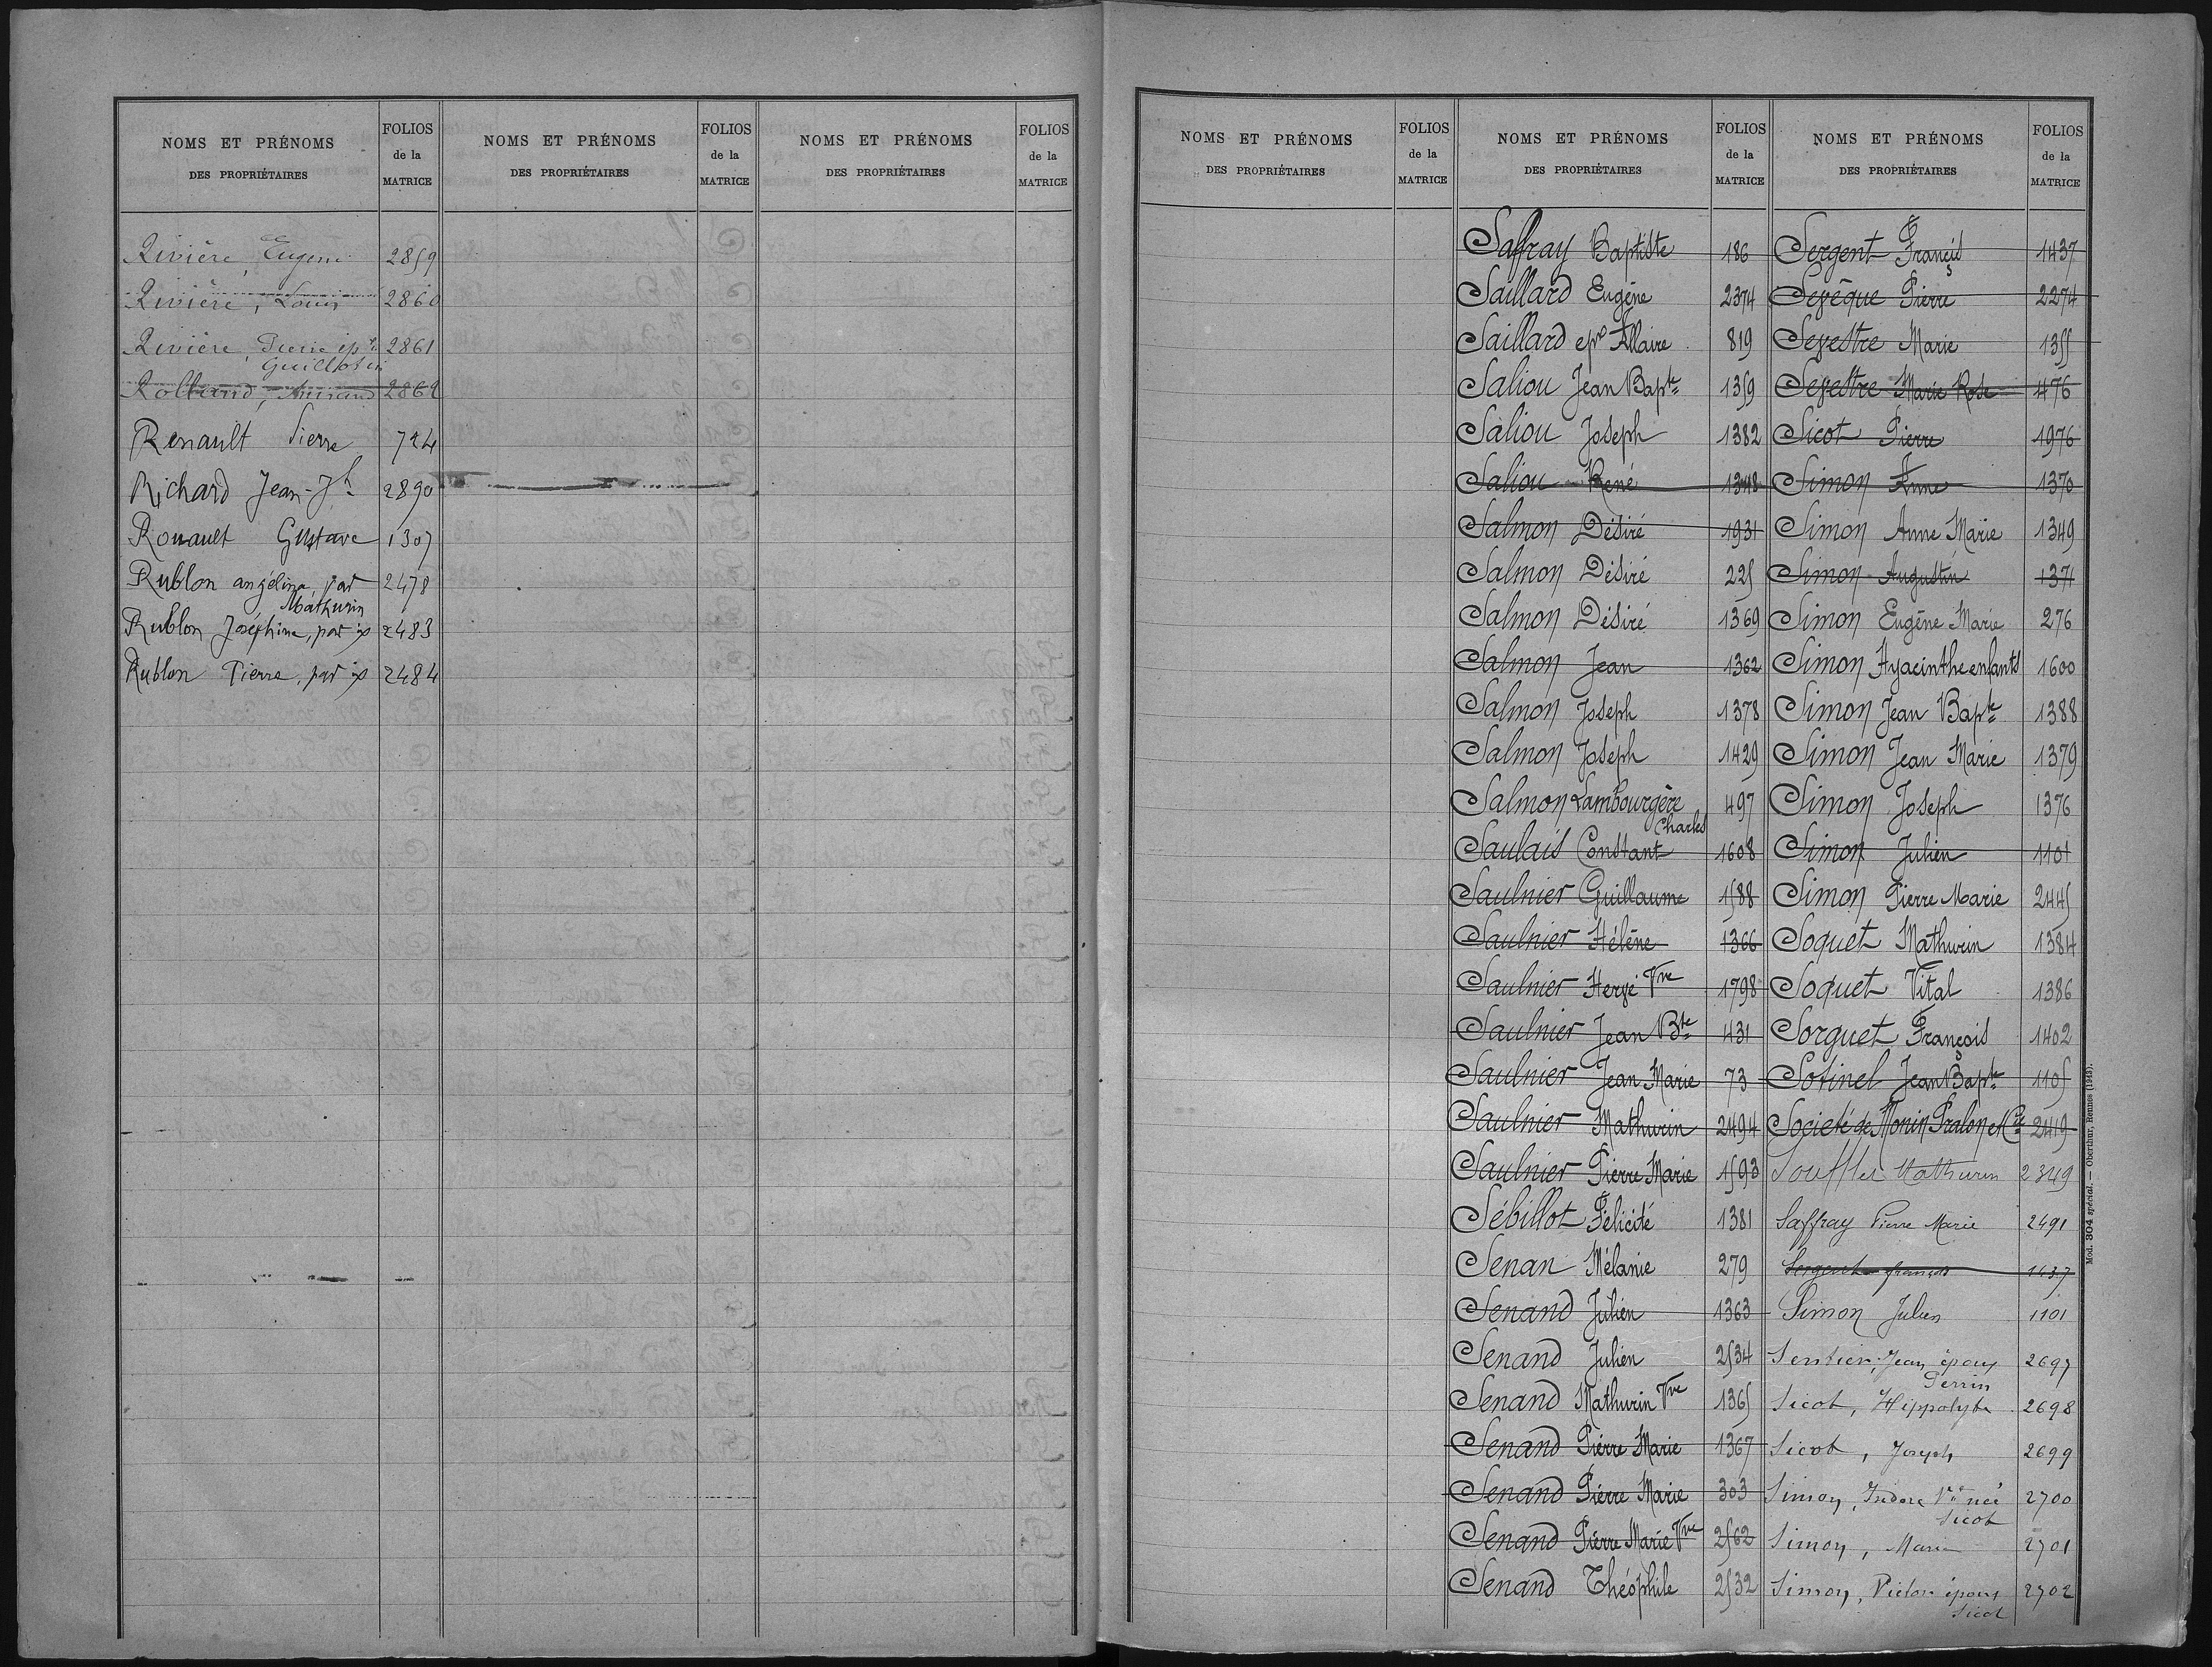 NOMS ET PRÉNOMS
DES PROPRIÉTAIRES
FOLIOS
de la
MATRICE
Rivière, Eugène 2859
Rivière, Louis 2860
Rivière, Pierre ép.
Guillotin 2861
Rolland, Armand 2862
Renault Pierre 724
Richard Jean-Jh 2890
Rouault Gustave 1307
Rublon angélina, par
Mathurin 2478
Rublon Joséphine, par 2483
Rublon Pierre, par 2484
NOMS ET PRÉNOMS
DES PROPRIÉTAIRES
FOLIOS
de la
MATRICE
NOMS ET PRÉNOMS
DES PROPRIÉTAIRES
FOLIOS
de la
MATRICE
NOMS ET PRÉNOMS
DES PROPRIÉTAIRES
FOLIOS
de la
MATRICE
NOMS ET PRÉNOMS
DES PROPRIÉTAIRES
FOLIOS
de la
MATRICE
Saffray Baptiste 186
Saillard Eugène 2374
Saillard epse Allaire 819
Saliou Jean Bapte 1359
Saliou Joseph 1382
Saliou René 1348
Salmon Désiré 1931
Salmon Désiré 225
Salmon Désiré 1369
Salmon Jean 1362
Salmon Joseph 1378
Salmon Joseph 1429
Salmon Lambourgère
Charles 497
Saulais Constant 1608
Saulnier Guillaume 1588
Saulnier Hélène 1366
Saulnier Hervé Vve 1798
Saulnier Jean Bte 431
Saulnier Jean Marie 73
Saulnier Mathurin 2494
Saulnier Pierre Marie 1593
Sébillot Félicité 1381
Senan Mélanie 279
Senand Julien 1363
Senand Julien 2534
Senand Mathurin Vve 1365
Senand Pierre Marie 1367
Senand Pierre Marie 303
Senand Pierre Marie Vve 2562
Senand Théophile 2532
NOMS ET PRÉNOMS
DES PROPRIÉTAIRES
FOLIOS
de la
MATRICE
Sergent François 1437
Sevêque Pierre 2274
Sevestre Marie 1355
Sevestre Marie Rose 476
Sicot Pierre 1976
Simon Anne 1370
Simon Anne Marie 1349
Simon Augustin 1371
Simon Eugène Marie 276
Simon Hyacinthe enfants 1600
Simon Jean Bapte 1388
Simon Jean Marie 1379
Simon Joseph 1376
Simon Julien 1101
Simon Pierre Marie 2445
Soquet Mathurin 1384
Soquet Vital 1386
Sorguet François 1402
Sotinel Jean Bapte 1105
Societé de Monin Pralon et Cie 2419
Souffler Mathurin 2349
Saffray Pierre Marie 2491
Sergent françois 1437
Simon Julien 1101
Sentier, Jean époux
Perrin 2697
Sicot, Hippolyte 2698
Sicot, Joseph 2699
Simon, Isidore Vve née
Sicot 2700
Simon, Marie 2701
Simon, Victor époux
Sicot 2702
Mod. 304 spécial. — Oberthur, Rennes (1943).